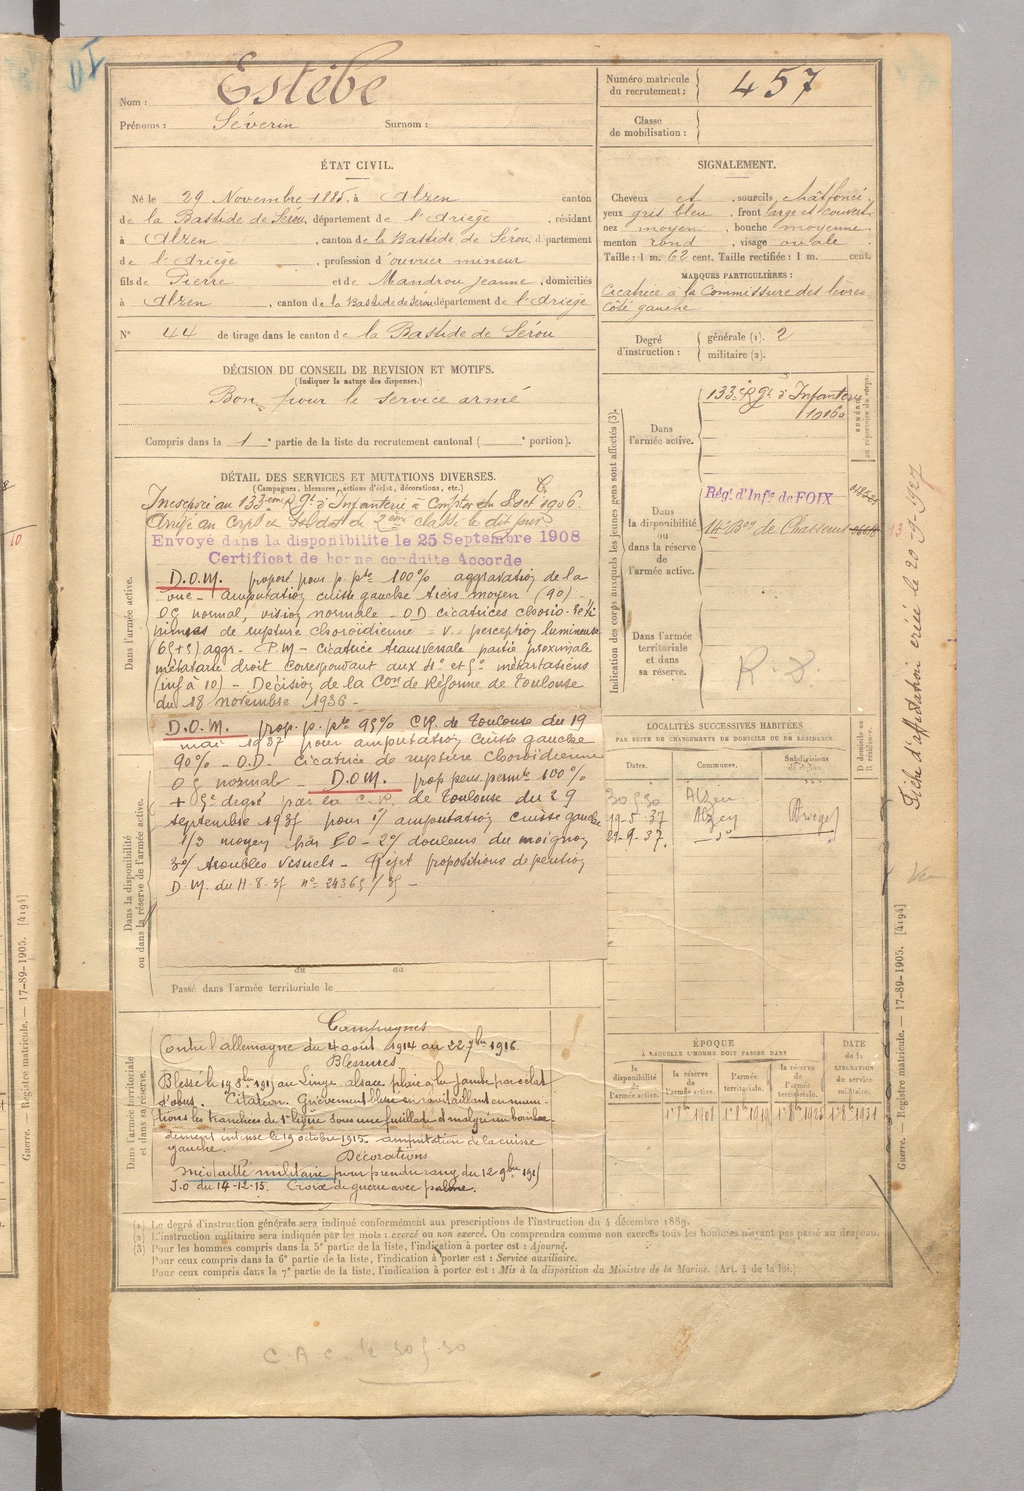 VI
Nom : Estèbe
Prénoms : Séverin Surnom :
Numéro matricule du recrutement : 457
Classe de mobilisation :
ÉTAT CIVIL.
Né le 29 Novembre 1885, à Alzen canton
de la Bastide de Sérou, département de l'Ariège, résidant
à Alzen, canton de la Bastide de Sérou, département
de l'Ariège, profession d'ouvrier mineur
fils de Pierre et de Mandrou Jeanne, domiciliés
à Alzen, canton de la Bastide de Sérou département de l'Ariège
N° 44 de tirage dans le canton de la Bastide de Sérou
SIGNALEMENT.
Cheveux et, sourcils chât foncé,
yeux gris bleu, front large et couvert
nez moyen, bouche moyenne
menton rond, visage ovale
Taille : 1 m. 62 cent. Taille rectifiée : 1 m. cent.
MARQUES PARTICULIÈRES :
Cicatrice à la Commissure des lèvres
côté gauche
Degré d'instruction : générale (1). 2
militaire (2).
DÉCISION DU CONSEIL DE REVISION ET MOTIFS.
(Indiquer la nature des dispenses.)
Bon pour le service armé
Compris dans la 1e partie de la liste du recrutement cantonal ( e portion).
DÉTAIL DES SERVICES ET MUTATIONS DIVERSES.
(Campagnes, blessures, actions d'éclat, décorations, etc.)
Dans l'armée active.
Incorporé au 133ème Rgt d'Infanterie à Compter du 8 1906.
Arrivé au Corps et Soldat de 2ème classe le dit jour
Envoyé dans la disponibilité le 25 Septembre 1908
Certificat de bonne conduite Accordé
D.O.M. proposé pour p. pte 100% aggravation de la
vue - amputation cuisse gauche tiers moyen (90) -
OG normal, vision normale - O.D cicatrices chorio-
de rupture choroïdienne = V = perception lumineuse
(65+5) aggr - P.M - cicatrice transversale partie proximale
métatarse droit correspondant aux 4e et 5e métatarsiens
(inf à 10) - Décision de la Con de Réforme de Toulouse
du 18 novembre 1936 -
D.O.M. prop. p. pte 95% C.R. de Toulouse du 19
mai 1937 pour amputation cuisse gauche
90% - O.D. Cicatrice de rupture choroïdienne
O G normal - D.O.M. prop pens. permte 100%
+ 5e degré par la C.R. de Toulouse du 29
septembre 1937 pour 1°/ amputation cuisse gauche
1/3 moyen - 2°/ douleurs du moignon
3°/ troubles visuels - Rejet propositions de pension
Dans la disponibilité ou dans la réserve de l'armée active.
du au
Passé dans l'armée territoriale le
Dans l'armée territoriale et dans sa réserve.
Campagnes
Contre l'allemagne du 4 août 1914 au 22 7bre 1916.
Blessures
Blessé le 19 8bre 1915 au Linge, alsace plaie à la jambe par éclat
d'obus. Citation. Grièvement blessé en ravitaillant en muni-
tions les tranchées de 1re ligne sous une fusillade et malgré un bombar-
dement intense le 19 octobre 1915. amputation de la cuisse
gauche. Décorations
médaille militaire pour prendre rang du 12 9bre 1915
J.O du 14-12-15. Croix de guerre avec palme.
Indication des corps auxquels les jeunes gens sont affectés (3).
Dans l'armée active.
133e Rgt d'Infanterie
Dans la disponibilité ou dans la réserve de l'armée active.
Régt. d'Infie de FOIX
14e Bon de Chasseurs
Dans l'armée territoriale et dans sa réserve.
R. D.
NUMÉROS au répertoire du corps.
LOCALITÉS SUCCESSIVES HABITÉES
PAR SUITE DE CHANGEMENTS DE DOMICILE OU DE RÉSIDENCE.
Dates. Communes. Subdivisions de région. D domicile ou R résidence.
30 5 30 Alzen
19-5-37 Alzen Ariège
29-9-37. do
ÉPOQUE
À LAQUELLE L'HOMME DOIT PASSER DANS
la disponibilité de l'armée active. la réserve de l'armée active. l'armée territoriale. la réserve de l'armée territoriale. DATE de la LIBÉRATION du service militaire.
1er 8bre 1908
Fiche d'affectation créée le 20-9-1927
Guerre. — Registre matricule. — 17-89-1905. [4194]
Guerre. — Registre matricule. — 17-89-1905. [4194]
(1) Le degré d'instruction générale sera indiqué conformément aux prescriptions de l'instruction du 4 décembre 1889.
(2) L'instruction militaire sera indiquée par les mots : exercé ou non exercé. On comprendra comme non exercés tous les hommes n'ayant pas passé au drapeau.
(3) Pour les hommes compris dans la 5e partie de la liste, l'indication à porter est : Ajourné.
Pour ceux compris dans la 6e partie de la liste, l'indication à porter est : Service auxiliaire.
Pour ceux compris dans la 7e partie de la liste, l'indication à porter est : Mis à la disposition du Ministre de la Marine. (Art. 4 de la loi.)
C.A.C. le 30 5 30